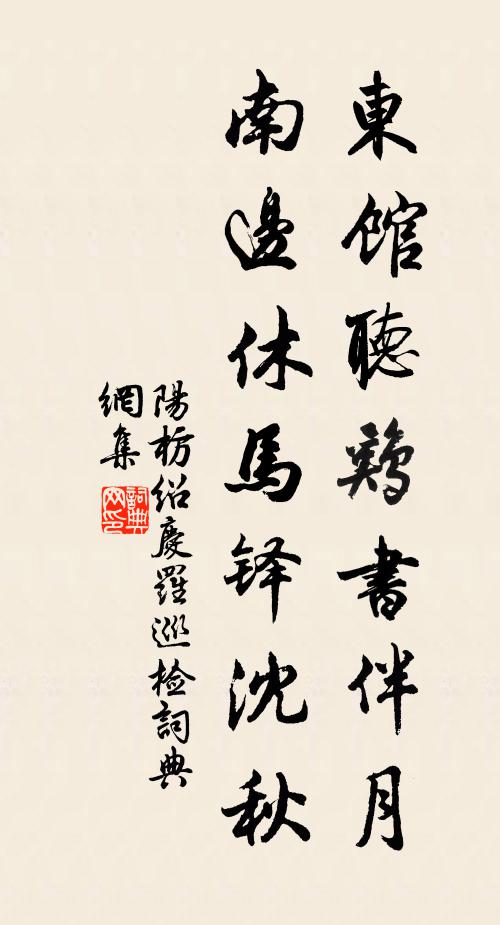 東館聽鷄書伴月
南邊休馬铎沈秋
陽枋紹慶羅巡檢詞典
網集
詞典
网印